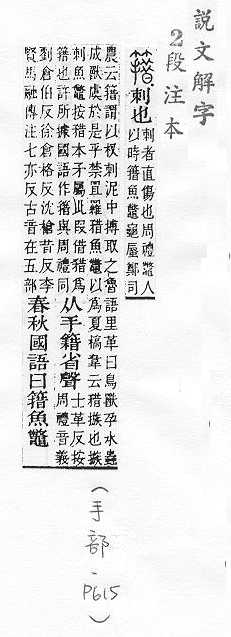 説文解字
2段注本
簎刺也
刺者直傷也周禮鼈人
以時簎魚鼈龜蜃鄭司
農云簎謂以杈刺泥中搏取之魯語里革曰鳥獸孕水蟲
成獸虞於是乎禁罝羅矠魚鼈以爲夏槁韋云矠㩍也㩍
刺魚鼈按矠本矛屬此叚借矠爲
簎也許所據國語作簎與周禮同
从手籍省聲
士革反按
周禮音義
劉倉伯反徐倉格反沈槍昔反李
賢馬融傳注七亦反古音在五部
春秋國語曰簎魚鼈
(手部-P615)